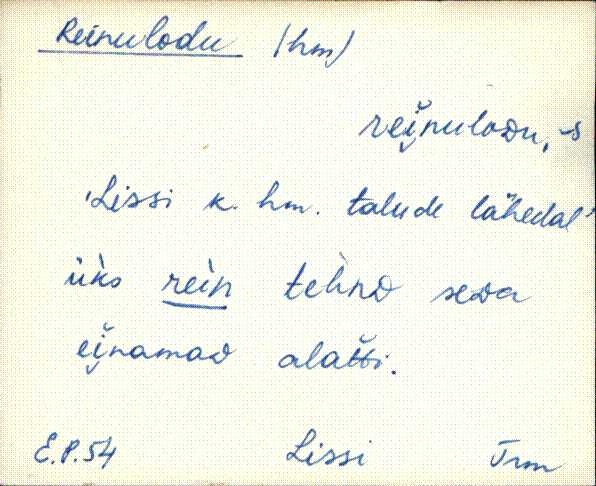 Reinulodu (hm)
rei̯nuloDu, -s
'Lissi k. hm. talude lähedal'
üks rein tehnD seDa
ei̯namaD alaťťi.
E.P.54 Lissi Trm